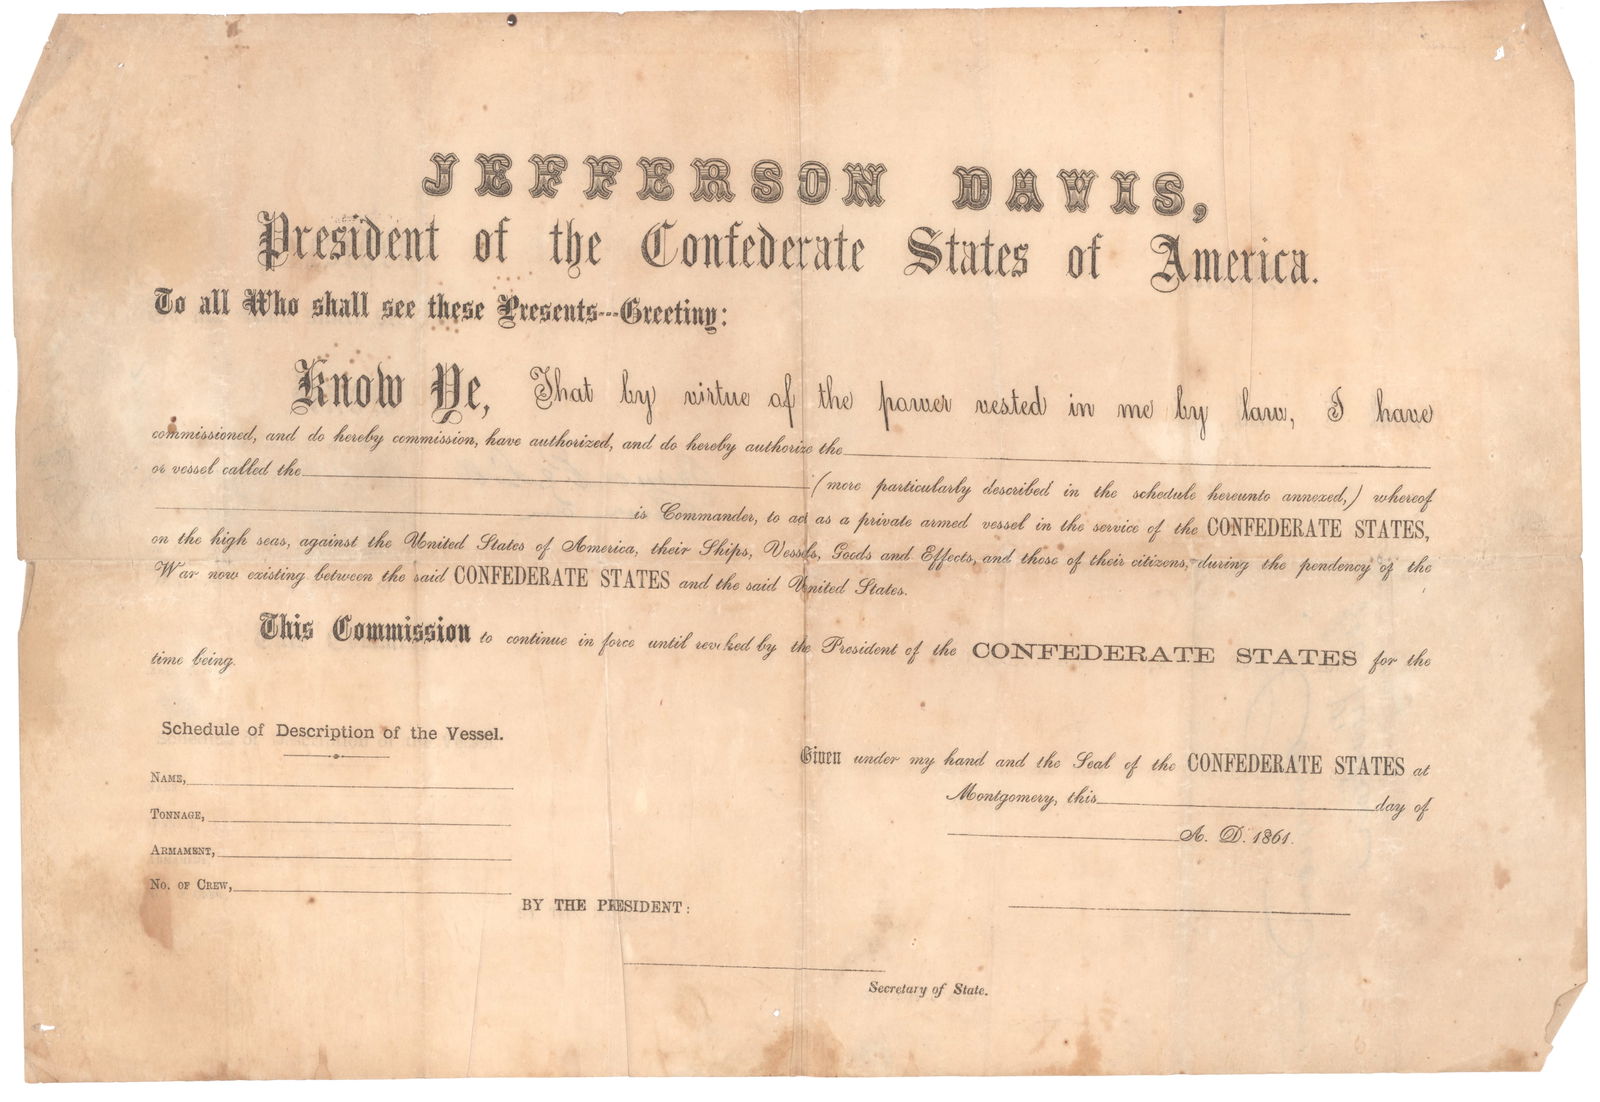 JEFFERSON DAVIS,
President of the Confederate States of America.
To all Who shall see these Presents---Greeting:
Know Ye, That by virtue of the power vested in me by law, I have
commissioned, and do hereby commission, have authorized, and do hereby authorize the
or vessel called the (more particularly described in the schedule hereunto annexed,) whereof
is Commander, to act as a private armed vessel in the service of the CONFEDERATE STATES,
on the high seas, against the United States of America, their Ships, Vessels, Goods and Effects, and those of their citizens, during the pendency of the
War now existing between the said CONFEDERATE STATES and the said United States.
This Commission to continue in force until revoked by the President of the CONFEDERATE STATES for the
time being.
Schedule of Description of the Vessel.
NAME,
TONNAGE,
ARMAMENT,
NO. OF CREW,
Given under my hand and the Seal of the CONFEDERATE STATES at
Montgomery, this day of
A. D. 1861.
BY THE PRESIDENT:
Secretary of State.